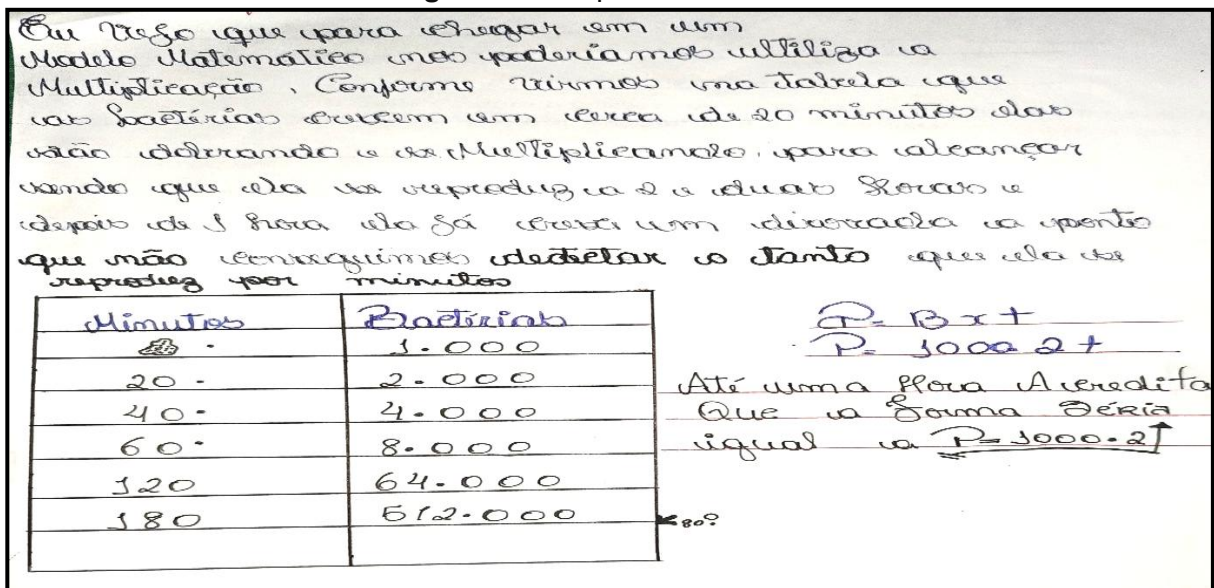 Eu Vejo que para chegar em um
Modelo Matemático nos poderiamos ultiliza a
Multiplicação, Conforme virmos na Tabela que
as Bactérias crescem em cerca de 20 minutos elas
vão dobrando e se Multiplicando. para alcançar
vendo que ela se reproduz a 2 a duas Horas e
depois de 1 hora ela já cresce um disparada a ponto
que não conseguimos dedectar o Tanto que ela se
reproduz por minutos
Minutos Bactérias
1.000
20 2.000
40 4.000
60 8.000
120 64.000
180 512.000
80?
P= B x t
P= 1000 2 t
Até uma Hora Acredita
Que a Forma Séria
igual a P=1000.2↑